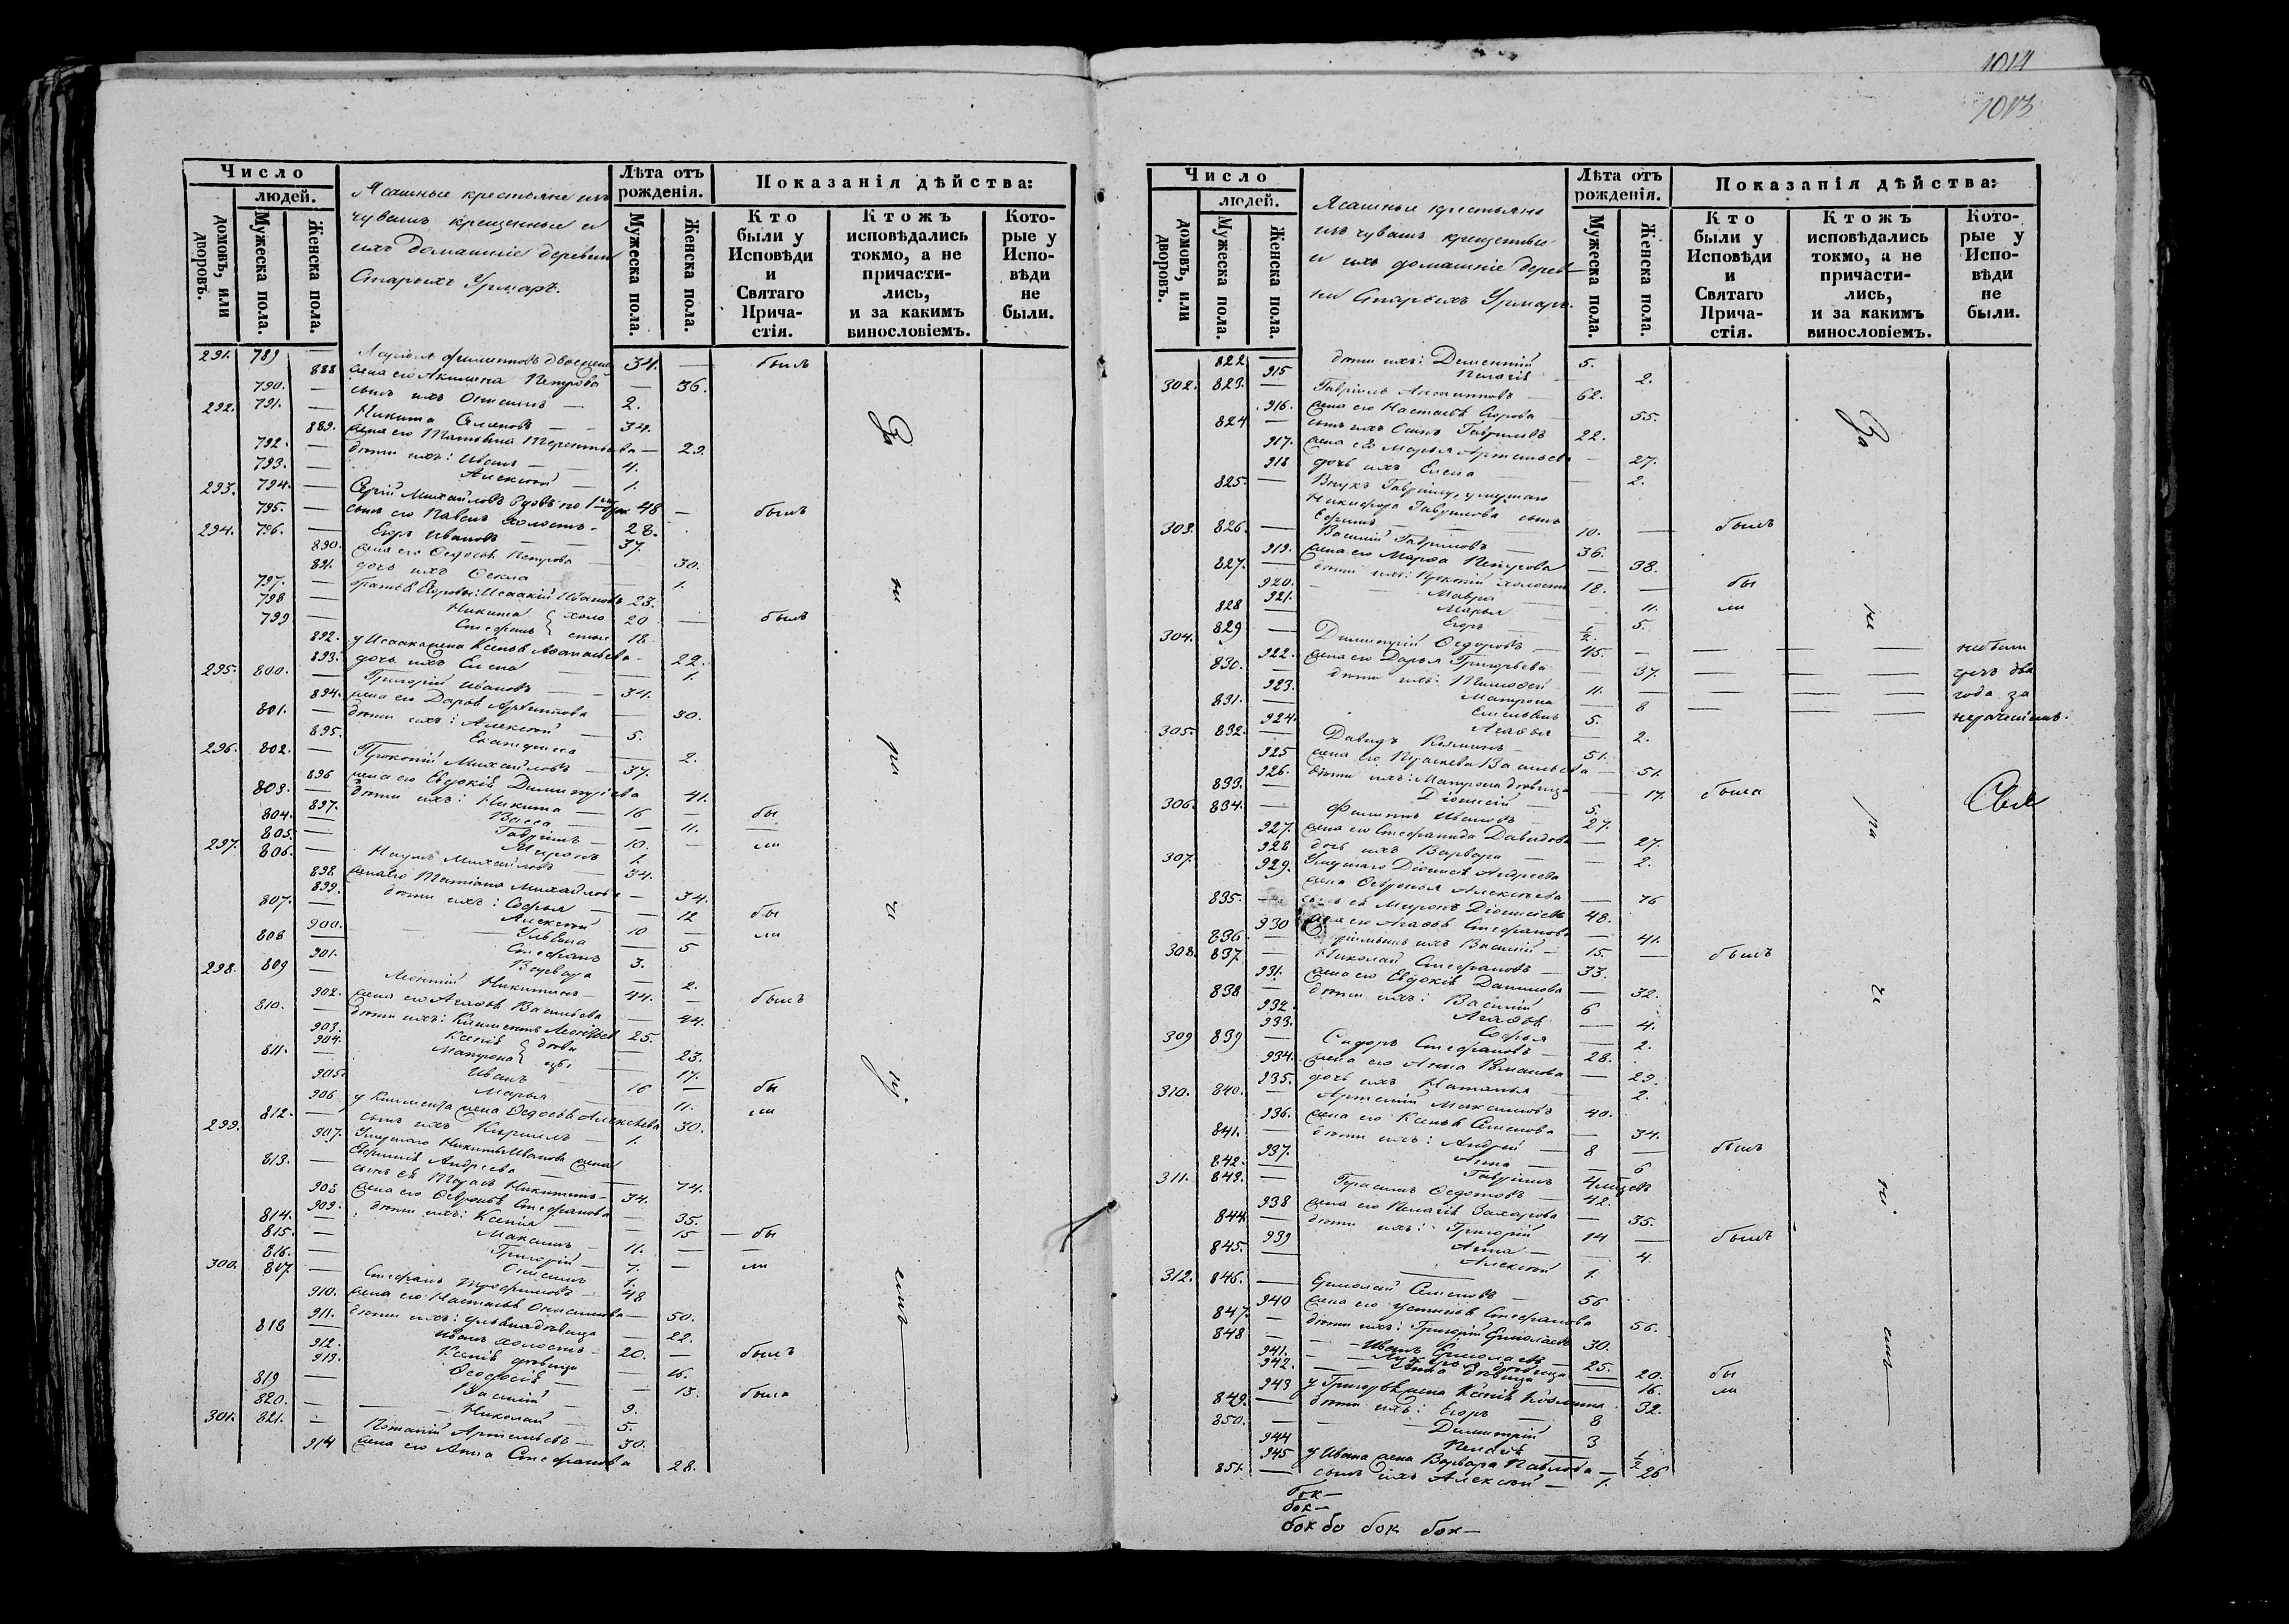 1014
1013
Число
людей.
домовъ, или дворовъ.
Мужеска пола.
Женска пола.
Ясашные крестьяне изъ
чувашъ крещенные и
ихъ домашніе деревни
Старыхъ Урмаръ.
Лѣта отъ рожденія.
Мужеска пола.
Женска пола.
Показанія дѣйства:
Кто были у Исповѣди и Святаго Прича-стія.
Ктожъ исповѣдались токмо, а не причасти-лись, и за какимъ винословіемъ.
Кото-рые у Испо-вѣди не были.
291. 789 — Филиповъ 34. — былъ
888 жена его Акилина Петрова — 36.
790. — сынъ ихъ Онисимъ — 2.
292. 791. — Никита Семеновъ — 34.
889. жена его Татьяна Терентьева — 29.
792. — дѣти ихъ: Иванъ — 4.
793. — Алексѣй — 1.
293. 794. — Сергій Михайловъ вдовъ по 1мъ 48 — былъ
795. — сынъ его Павелъ холостъ. 28.
294. 796. — Егоръ Ивановъ — 37.
890. жена его Ѳедосья Петрова 30.
891. дочь ихъ Ѳекла 1.
797. — братья Егоровы: Исаакій Ивановъ 23.
798 — Никита холо 20 — былъ
799 — Стефанъ стые 18.
892. у Исаака жена Ксенья Аѳанасьева 22.
893. дочь ихъ Елена 1.
295. 800. — Григорій Ивановъ — 34.
894. жена его Дарья Архиппова 30.
801. — дѣти ихъ: Алексѣй — 5.
895. Екатерина 2.
296. 802. — Прокопій Михайловъ — 37.
896 жена его Евдокія Димитріева 41.
803. — дѣти ихъ: Никита — 16 — бы
897. Васса — 11. —
804. — Гавріилъ — 10. — ли
805. — Миронъ 1.
297. 806. — Наумъ Михайловъ — 34.
898. жена его Татіана Михайлова — 34.
899. дѣти ихъ: Софья — 12 бы
807. — Алексѣй 10 — ли
900. Ульяна — 5
808 — Стефанъ 3.
901. Варвара — 2.
298. 809 — Леонтій Никитинъ — 44. — былъ
902. жена его Агафья Васильева — 44.
810. — дѣти ихъ: Климентъ Леонтьевъ 25.
903. Ксенія дѣви — 23.
904. Матрона цы — 17.
811. — Иванъ 16 — бы
905. Марья — 11. ли
906 у Климента жена Ѳедосья Алексѣева 30.
812. — сынъ ихъ Кириллъ — 1.
299. 907. Умершаго Никиты Иванова жена
Евфимія Андреева — 74.
813. — сынъ ея Никитинъ — 34.
908 жена его Ѳевронья Стефанова — 35.
909. дѣти ихъ: Ксенія — 15 — бы
814. — Максимъ — 11. —
815. — Григорій — 7. — ли
816. — Онисимъ 1.
300. 817. — Стефанъ Трофимовъ — 48
910. жена его Настасья Онисимова — 50.
911. дѣти ихъ: Ульяна дѣвица — 22.
818 — Иванъ холостъ — 20. — былъ
912. Ксенія дѣвица — 16.
913. Ѳеодосія — 13. была
819 — Василій — 9.
820. — Николай — 5.
301. 821. — Потапій Артемьевъ — 30.
914 жена его Анна Стефанова 28.
За
ни
ма
Число
людей.
домовъ, или дворовъ.
Мужеска пола.
Женска пола.
Ясашные крестьяне
изъ чувашъ крещенные
и ихъ домашніе дерев-
ни Старыхъ Урмаръ.
Лѣта отъ рожденія.
Мужеска пола.
Женска пола.
Показанія дѣйства:
Кто были у Исповѣди и Святаго Прича-стія.
Ктожъ исповѣдались токмо, а не причасти-лись, и за какимъ винословіемъ.
Кото-рые у Испо-вѣди не были.
822 — дѣти ихъ: Дементій 5.
915 Пелагія — 2.
302. 823. — Гавріилъ 62.
916. жена его Настасья Егорова — 55.
824 — сынъ ихъ Гавриловъ 22.
917. жена его Марья Артемьева — 27.
918 дочь ихъ Елена — 2.
825. — Внукъ Гавріилу, умершаго
Никифора Гаврилова сынъ
Ефимъ — 10. — былъ
303. 826. — Василій Гавриловъ — 36.
919. жена его Марѳа Петрова — 38.
827. — дѣти ихъ: холостъ 18. — бы
920. Мавра — 11. ли
921. Марья — 5.
828 — Егоръ — ½.
304. 829 — Димитрій Ѳедоровъ — 45. — — — небыли
922. жена его Дарья Григорьева — 37. — — чрезъ два
830. — дѣти ихъ: Тимоѳей 11. — — — года за
923. Матрона — 8 — — нераченіемъ.
831. — Емельянъ 5.
924. Агафья — 2.
305. 832. — Давидъ Козминъ — 51.
925 жена его Прасковья Васильева — 51.
926. дѣти ихъ: Матрона дѣвица — 17. была
833. — Діонисій — 5.
306. 834. — Филиппъ Ивановъ — 27.
927. жена его Стефанида Давидова — 27.
928 дочь ихъ Варвара — 2.
307. 929. Умершаго Діонисія Андреева
жена Ѳевронья Алексѣева — 76
835. — сынъ ея Миронъ Діонисіевъ 48.
930 жена его Агафья Стефанова — 41.
836 — ихъ Василій — 15. — былъ
308. 837. — Николай Стефановъ — 33.
931. жена его Евдокія Данилова — 32.
838 — дѣти ихъ: Василій 6
932. Агафья — 4.
933. Софья — 2.
309 839 — Сидоръ Стефановъ — 28.
934. жена его Анна Романова — 29.
935. дочь ихъ Наталья — 2.
310. 840. — Артемій Максимовъ 40.
936. жена его Ксенья Семенова — 34.
841. — дѣти ихъ: Андрей — 8 — былъ
937. Анна — 6
842. — Гавріилъ 4 мѣсяцевъ
311. 843. — Герасимъ Ѳедотовъ — 42.
938 жена его Пелагія Захарова — 35.
844 — дѣти ихъ: Григорій 14 — былъ
939 Анна — 4
845. — Алексѣй 1.
312. 846. — Ермолай Семеновъ — 56
940 жена его Устинья Стефанова 56.
847. — дѣти ихъ: Григорій Ермолаевъ 30.
848 — Иванъ Ермолаевъ — 25.
941. дѣвица — 20. бы
942. Анна дѣвица — 16. ли
943 у Григорья жена Ксенія Козмина 32.
849. — дѣти ихъ: Егоръ — 8
850. — Димитрій 3
944 Пелагія — ½
945 у Ивана жена Варвара Павлова — 26
851. — сынъ ихъ Алексѣй — 1.
За
ни
ра
чи
бок—
бок—
бок бо бок бок—